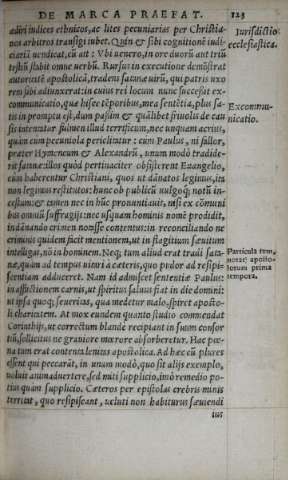 DE MARCA PRAEFAT. 123
adiri iudices ethnicos, ac lites pecuniarias per Christia-
nos arbitros transigi iubet. Quin & sibi cognitionē iudi-
ciariā uendicat, cū ait: Vbi uenero, in ore duorū aut triū
testiū stabit omne uerbū. Rursus in executione demōstrat
autoritatē apostolicā, tradens satanæ uirū, qui patris uxo
rem sibi adiunxerat: in cuius rei locum nunc successit ex-
communicatio, qua hisce tēporibus, mea sentētia, plus sa-
tis in promptu est, dum passim & quālibet friuolis de cau
sis intentatur fulmen illud terrificum, nec unquam acrius,
quàm cum pecuniola periclitatur: cum Paulus, ni fallor,
præter Hymeneum & Alexandrū, unum modò tradide-
rit satanæ: illos quòd pertinaciter obsisterent Euangelio,
cùm haberentur Christiani, quos ut dānatos legimus, ita
non legimus restitutos: hunc ob publicū uulgoq; notū in-
cestum: & tamen nec in hūc pronuntiauit, nisi ex cōmuni
bus omniū suffragijs: nec usquam hominis nomē prodidit,
in dānando crimen nouisse contentus: in reconciliando ne
criminis quidem facit mentionem, ut in flagitium sæuitum
intelligas, nō in hominem. Neq; tum aliud erat tradi sata-
næ, quàm ad tempus uitari à cæteris, quo pudor ad resipi-
scentiam adduceret. Nam id admiscet sententiæ Paulus:
in afflictionem carnis, ut spiritus saluus fiat in die domini:
ut ipsa quoq; seueritas, qua medetur malo, spiret aposto-
li charitatem. At mox eundem quanto studio commēdat
Corinthijs, ut correctum blandè recipiant in suum consor
tiū, sollicitus ne grauiore mœrore absorberetur. Hac pœ-
na tum erat contenta lenitas apostolica. Ad hæc cū plures
essent qui peccarāt, in unum modò, quo sit alijs exemplo,
uoluit animaduertere, sed miti supplicio, imò remedio po-
tius quàm supplicio. Cæteros per epistolas crebris minis
territat, quo resipiscant, ueluti non habiturus sæuiendi
ius
Iurisdictio
ecclesiastica.
Excommu-
nicatio.
apostolorum prima
tempora.